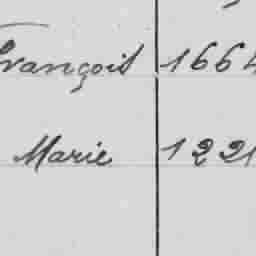 François 1664
Marie 1221